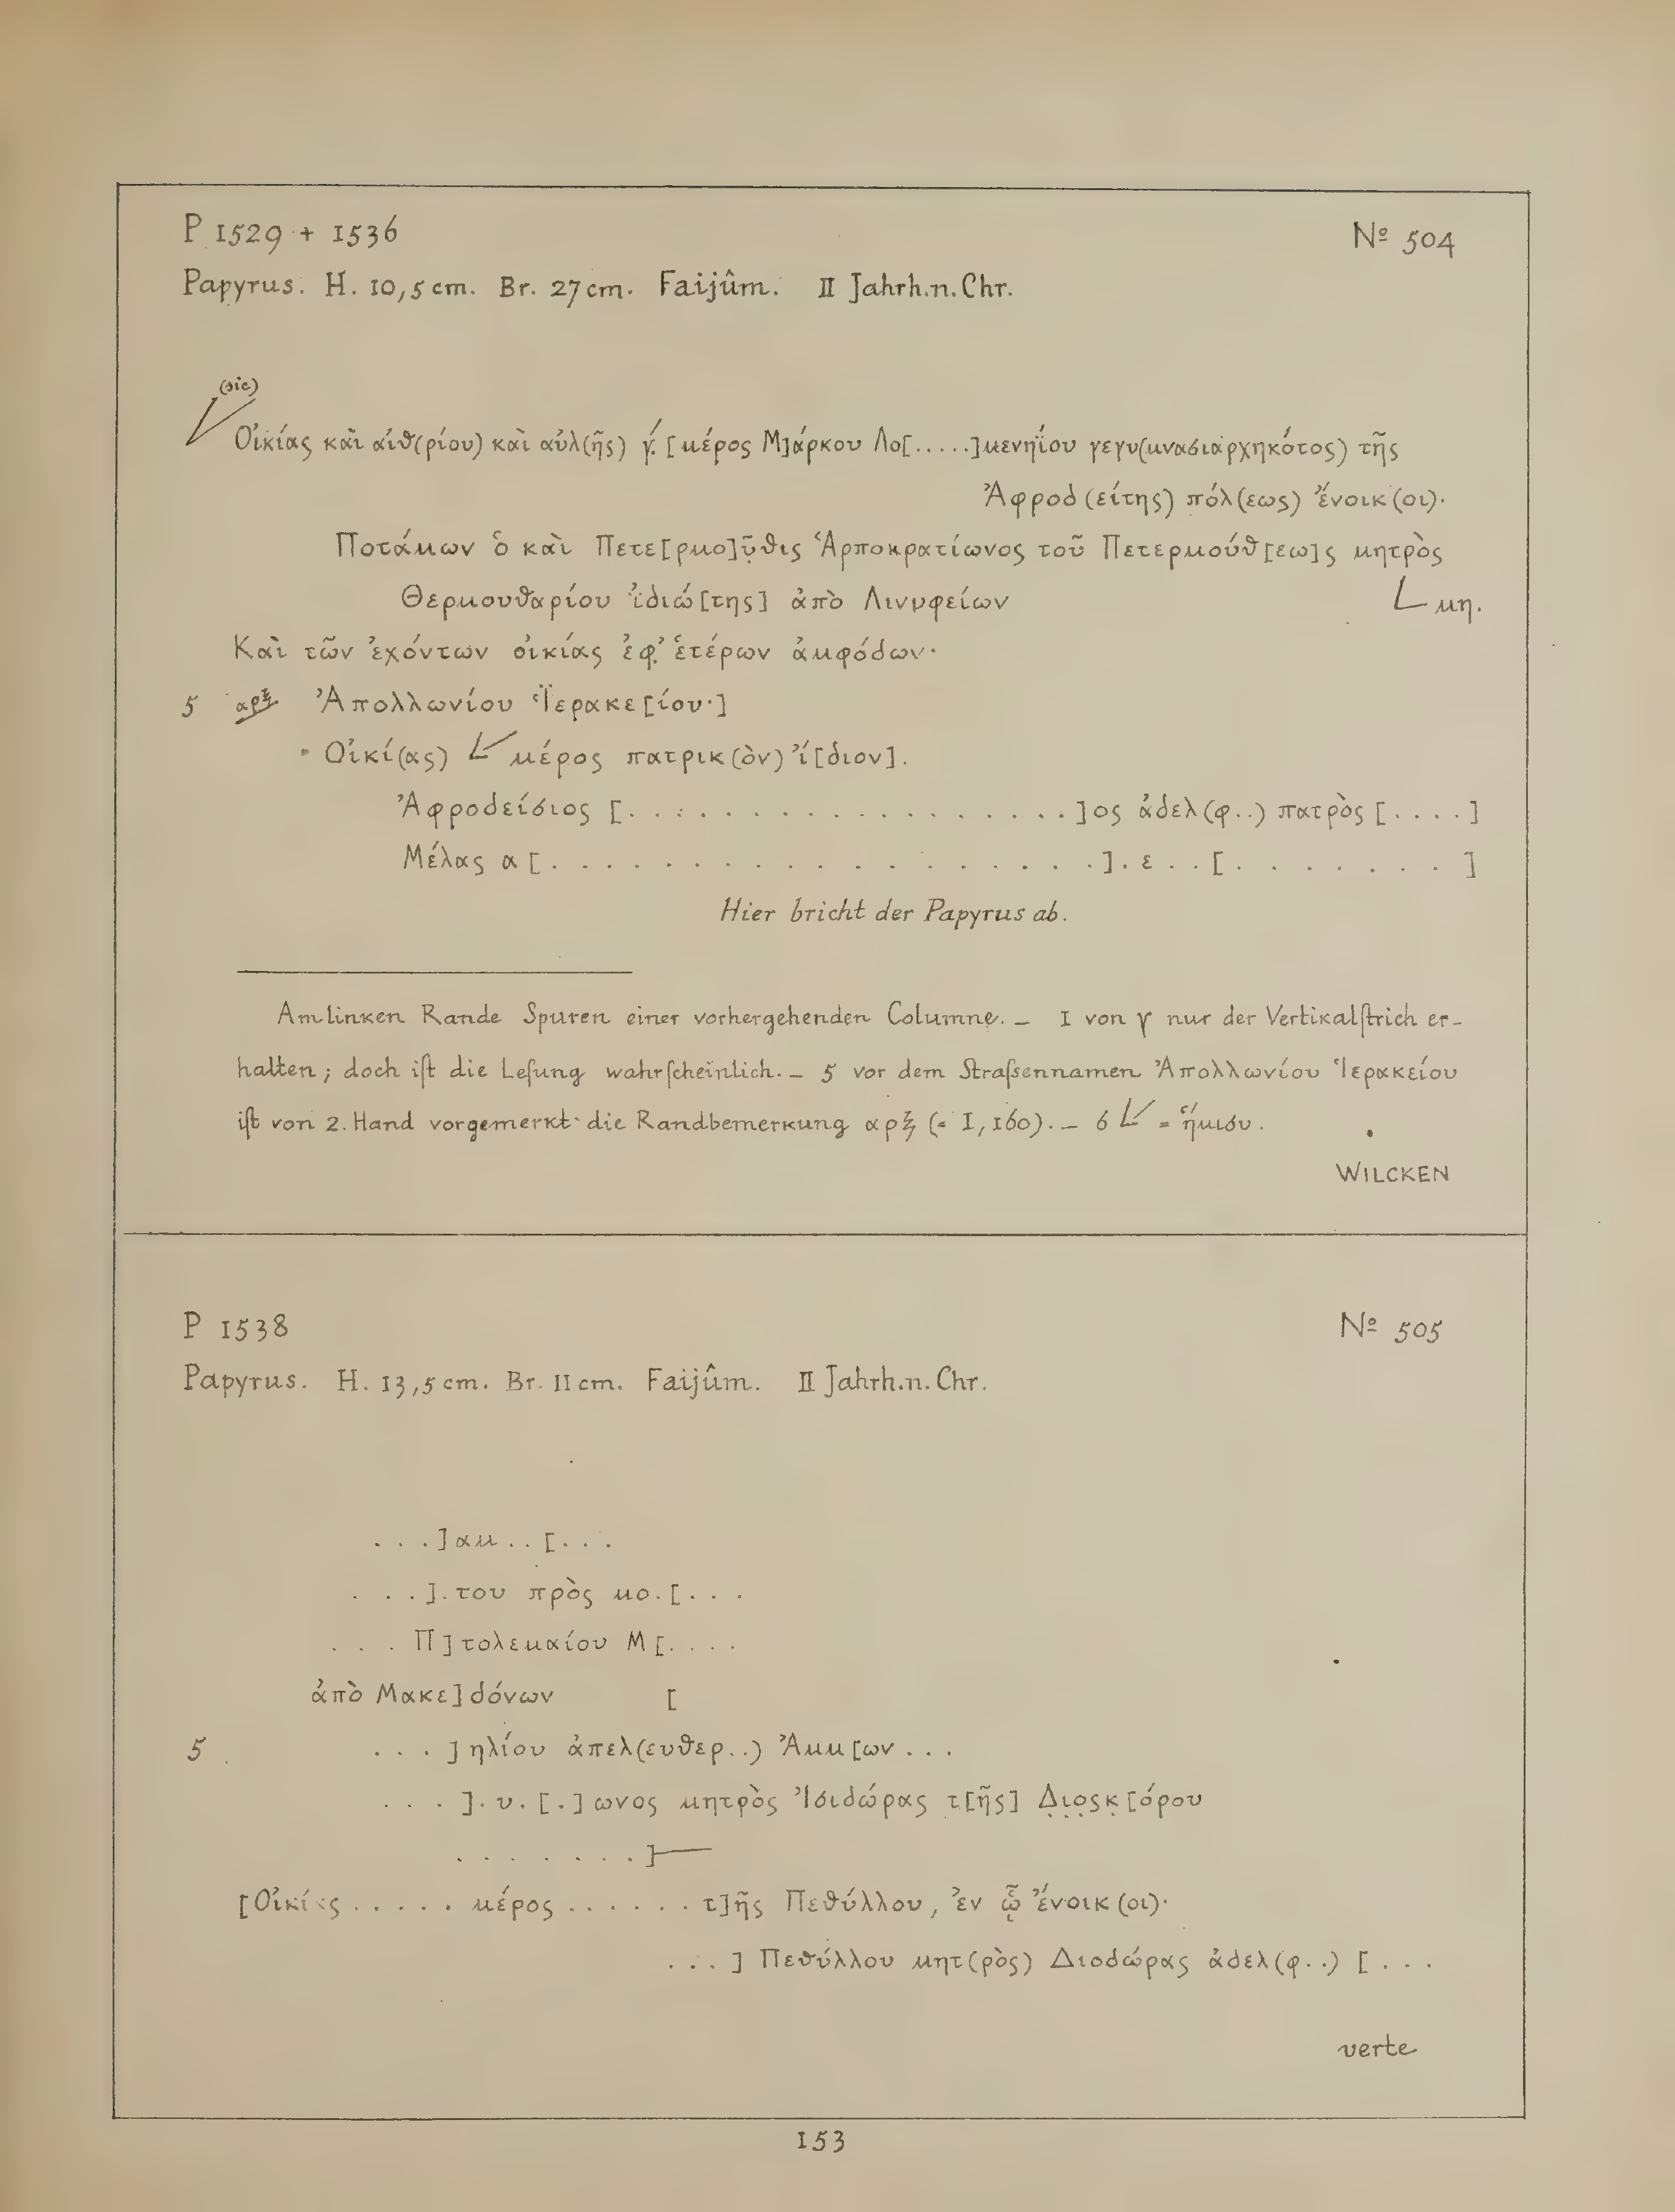 P 1529 + 1536 Nº 504
Papyrus. H. 10,5 cm. Br. 27 cm. Faijûm. II Jahrh. n. Chr.
(sic)
Οἰκίας καὶ αἰθ(ρίου) καὶ αὐλ(ῆς) γ̣́ [μέρος Μ]άρκου Λο[.....]μενηΐου γεγυ(μνασιαρχηκότος) τῆς
Ἀφροδ(είτης) πόλ(εως) ἔνοικ(οι)·
Ποτάμων ὁ καὶ Πετε[ρμο]ῦ̣θις Ἁρποκρατίωνος τοῦ Πετερμούθ[εω]ς μητρὸς
Θερμουθαρίου ἰδιώ[της] ἀπὸ Λινυφείων 𐅹 μη.
Καὶ τῶν ἐχόντων οἰκίας ἐφ' ἑτέρων ἀμφόδων·
5 αρξ Ἀπολλωνίου Ἱερακε[ίου·]
Οἰκί(ας) 𐅵 μέρος πατρικ(ὸν) ἴ[διον].
Ἀφροδείσιος [. . . . . . . . . . . . . . . .]ος ἀδελ(φ..) πατρὸς [. . . .]
Μέλας α[. . . . . . . . . . . . . . . . . . .]. ε . . [. . . . . . . . ]
Hier bricht der Papyrus ab.
Am linken Rande Spuren einer vorhergehenden Columne. _ 1 von γ nur der Vertikalſtrich er-
halten; doch iſt die Leſung wahrſcheinlich. _ 5 vor dem Straſsennamen Ἀπολλωνίου Ἱερακείου
iſt von 2. Hand vorgemerkt die Randbemerkung αρξ (= I, 160). _ 6 𐅵 = ἥμισυ.
WILCKEN
P 1538 Nº 505
Papyrus. H. 13,5 cm. Br. 11 cm. Faijûm. II Jahrh. n. Chr.
. . .]αμ . . [. . .
. . .]. του πρὸς μο. [. . .
. . . Π]τολεμαίου Μ[. . . .
ἀπὸ Μακε]δόνων [
5 . . . ]ηλίου ἀπελ(ευθερ..) Ἀμμ[ων . . .
. . . ]. υ. [.]ωνος μητρὸς Ἰσιδώρας τ[ῆς] Δ̣ι̣ο̣ς̣κ̣[όρου
. . . . . . .]—
[Οἰκίας . . . . . μέρος . . . . . . τ]ῆς Πεθύλλου, ἐν ᾧ ἔνοικ(οι)·
. . . ] Πεθύλλου μητ(ρὸς) Διοδώρας ἀδελ(φ..) [ . . .
verte
153